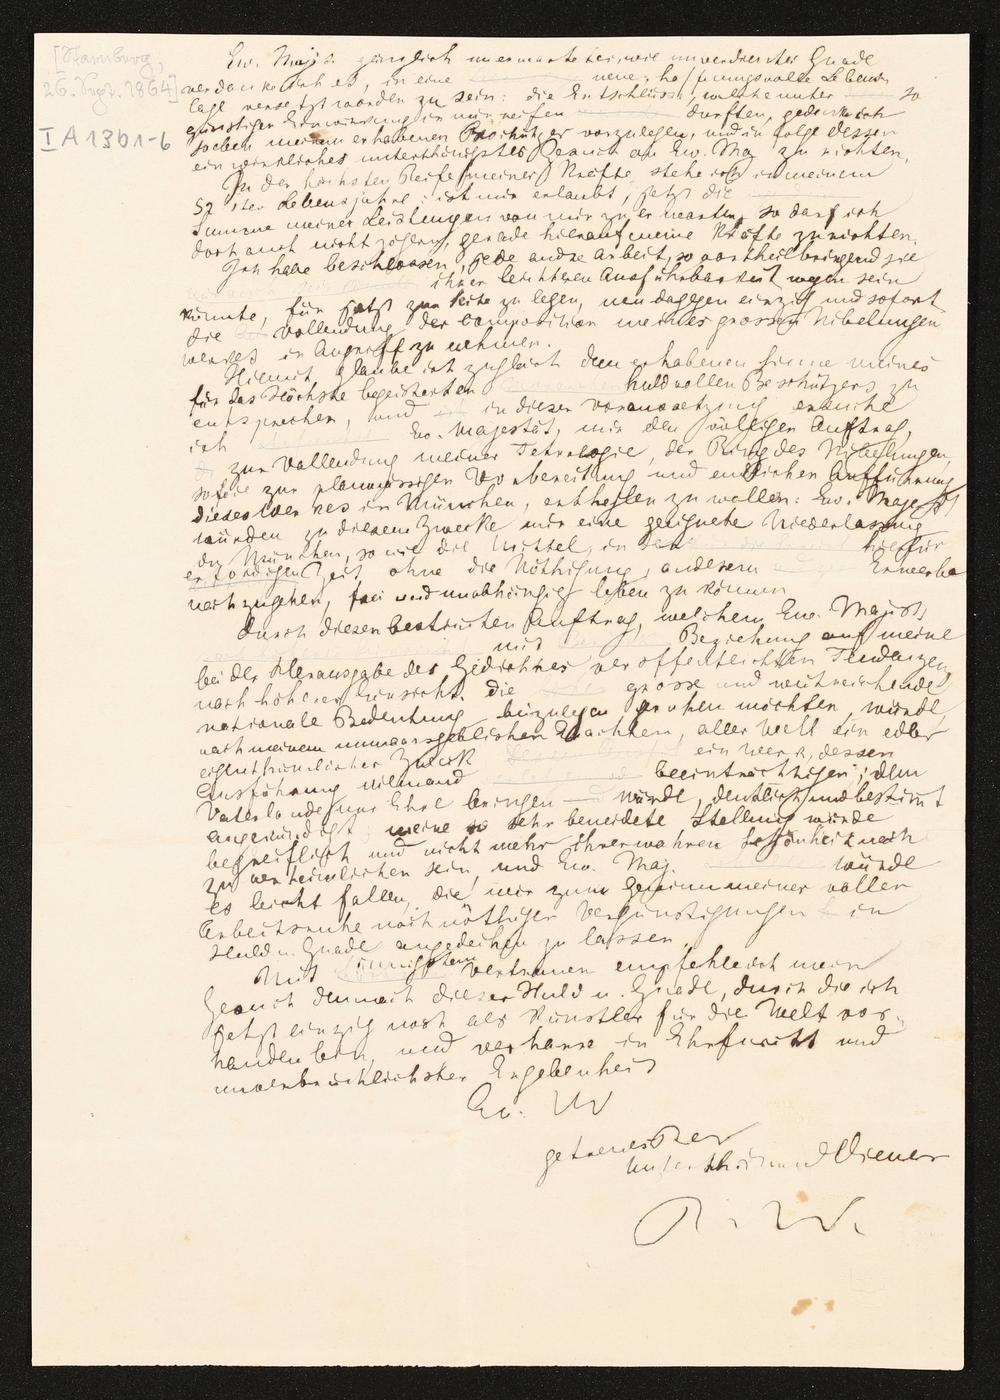 [Starnberg,
26. Sept. 1864]
I A 13 b 1-6
Ew. Maje. gänzlich unerwarteter, wie unverdienter Gnade
verdanke ich es, in eine neue, hoffnungsvolle Lebens
lage versetzt worden zu sein: die Entschlüsse, welche unter so
günstiger Einwirkung in mir reifen durften, gedenke ich
soeben meinem erhabenen Beschützer vorzulegen, und in Folge dessen
ein wirkliches unterthänigstes Gesuch an Ew. Maj zu richten.
In der höchsten Reife meiner Kräfte, stehe ich in meinem
52 sten Lebensjahre: ist mir erlaubt, jetzt die
Summe meiner Leistungen von mir zu erwarten, so darf ich
doch auch nicht zögern, gerade hierauf meine Kräfte zu richten.
Ich habe beschlossen, jede andre Arbeit, so vortheilbringend sie
ihrer leichteren Ausführbarkeit wegen sein
könnte, für jetzt zur Seite zu legen, um dagegen einzig und sofort
die Vollendung der Composition meines grossen Nibelungen
werkes in Angriff zu nehmen.
Hiermit glaube ich zugleich dem erhabenen Sinne meines
für das Höchste begeisterten huldvollen Beschützers zu
entsprechen, und in dieser Voraussetzung ersuche
ich Ew. Majestät, mir den völligen Auftrag,
zur Vollendung meiner Tetralogie, der Ring des Nibelungen,
sowie zur planmässigen Vorbereitung und endlichen Aufführung
dieses Werkes in München, ertheilen zu wollen: Ew. Majest
würden zu diesem Zwecke mir eine geeignete Niederlassung
in München, so wie die Mittel, in der hiefür
erforderlichen Zeit ohne die Nöthigung, anderem Erwerbe
nachzugehen, frei und unabhängig leben zu können
Durch diesen bestimmten Auftrag, welchem Ew. Majest,
mit Beziehung auf meine
bei der Herausgabe des Gedichtes veröffentlichten Tendenzen,
nach höherer Einsicht, die grosse und weitreichende
nationale Bedeutung beizulegen geruhen möchten, würde,
nach meinem unmaassgeblichen Erachten, aller Welt ein edler
eigenthümlicher Zweck ein Werk, dessen
Ausführung niemand beeinträchtigen, dem
Vaterlande nur Ehre bringen würde, deutlich und bestimmt
angekündigt; meine so sehr beneidete Stellung würde
begreiflich und nicht mehr ihrer wahren Schönheit nach
zu verheimlichen sein, und Ew. Maj. würde
es leicht fallen, die mir zum Gewinn meiner vollen
Arbeitsruhe noch nöthigen Vergünstigungen in
Huld u. Gnade angedeihen zu lassen.
Mit innigstem Vertrauen empfehle ich mein
Gesuch demnach dieser Huld u. Gnade, durch die ich
jetzt einzig noch als Künstler für die Welt vor-
handen bin, und verharre in Ehrfurcht und
unverbrüchlichster Ergebenheit
Ew. M
getreuester
unterthänigst Diener
R. W.